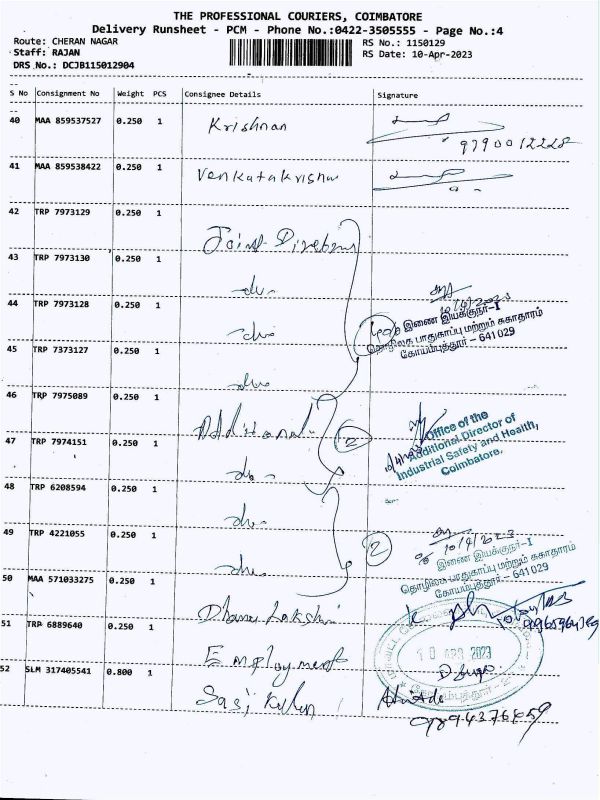 THE PROFESSIONAL COURIERS, COIMBATORE
Delivery Runsheet - PCM - Phone No.:0422-3505555 - Page No.:4
Route: CHERAN NAGAR
RS No.: 1150129
Staff: RAJAN
RS Date: 10-Apr-2023
DRS No.: DCJB115012904
S No Consignment No Weight PCS Consignee Details Signature
40 MAA 859537527 0.250 1 Krishnan
9790012228
41 MAA 859538422 0.250 1 Venkatakrishna
42 TRP 7973129 0.250 1 Joint Director
43 TRP 7973130 0.250 1 do
10/4/2023
44 TRP 7973128 0.250 1 do
இணை இயக்குநர்-I
தொழிலக பாதுகாப்பு மற்றும் சுகாதாரம்
கோயம்புத்தூர் - 641 029
45 TRP 7373127 0.250 1 do
46 TRP 7975089 0.250 1 Additional
2
Office of the
Additional Director of
Industrial Safety and Health,
Coimbatore.
47 TRP 7974151 0.250 1 do
48 TRP 6208594 0.250 1 do
49 TRP 4221055 0.250 1 do
2
10/4/2023
இணை இயக்குநர்-I
தொழிலக பாதுகாப்பு மற்றும் சுகாதாரம்
கோயம்புத்தூர் - 641 029
50 MAA 571033275 0.250 1 Dhanalakshmi
51 TRP 6889640 0.250 1 Employment
10 APR 2023
52 SLM 317405541 0.800 1 Sasi